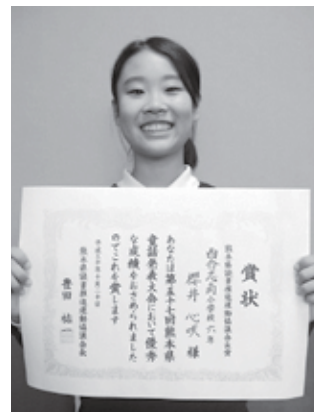 賞状
熊本県読書推進運動協議会長賞
小学校 六年
櫻井 心咲 様
あなたは第五十七回熊本県
童話発表大会において優秀
な成績をおさめられました
のでこれを賞します
熊本県読書推進運動協議会長
豊田 祐一